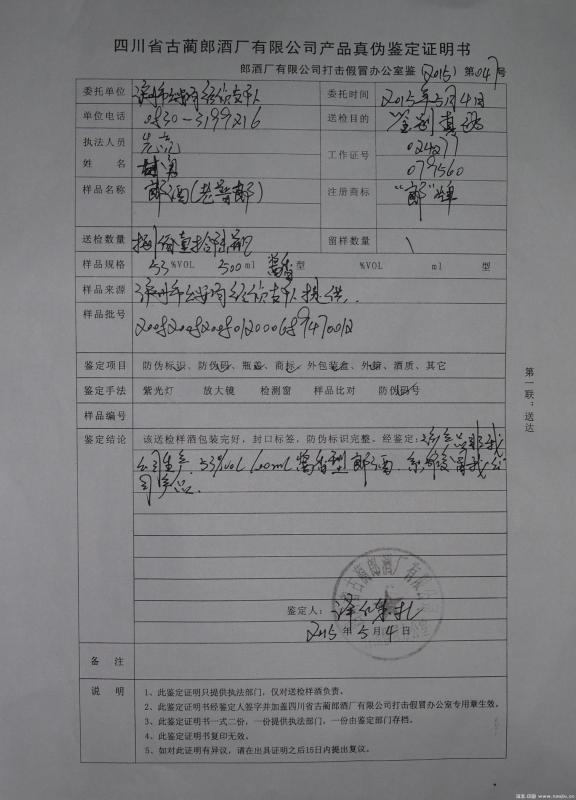 四川省古蔺郎酒厂有限公司产品真伪鉴定证明书
郎酒厂有限公司打击假冒办公室鉴（2015）第047号
委托单位 委托时间 2015年5月4日
单位电话 0830-3199216 送检目的 鉴别真伪
执法人员 工作证号 024277
姓名 079560
样品名称 郎酒(老普郎) 注册商标 "郎"牌
送检数量 留样数量 \
样品规格 53%VOL 500ml 酱香型 %VOL ml 型
样品来源 泸州市公安局经侦支队提供.
样品批号
鉴定项目 防伪标识、防伪码、瓶盖、商标、外包装盒、外箱、酒质、其它
鉴定手法 紫光灯 放大镜 检测窗 样品比对 防伪码号
样品编号
鉴定结论 该送检样酒包装完好，封口标签，防伪标识完整。经鉴定：该产品非我
公司生产.53%vol 500ml酱香型郎酒.系假冒我公
司产品.
鉴定人：
2015年5月4日
备注
说明 1、此鉴定证明只提供执法部门，仅对送检样酒负责。
2、此鉴定证明书经鉴定人签字并加盖四川省古蔺郎酒厂有限公司打击假冒办公室专用章生效。
3、此鉴定证明书一式二份，一份提供执法部门，一份由鉴定部门存档。
4、此鉴定证明书复印无效。
5、如对此证明有异议，请在出具证明之后15日内提出复议。
第一联：送达